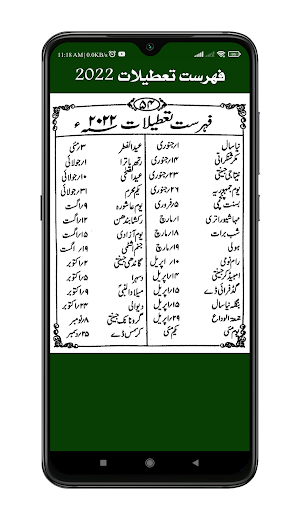 11:18 AM | 0.0KB/s
فہرست تعطیلات 2022
۵۴
فہرست تعطیلات ۲۰۲۲ء
نیا سال ۱؍جنوری عیدالفطر ۳؍مئی
مکرسنکرانتی ۱۴؍جنوری رتھ یاترا ۱؍جولائی
نیتاجی جینتی ۲۳؍جنوری عیدالضحیٰ ۱۰؍جولائی
یوم جمہوریہ ۲۶؍جنوری یکم محرم ۳۱؍جولائی
بسنت پنچمی ۵؍فروری یوم عاشورہ ۹؍اگست
مہاشیوراتری ۱؍مارچ رکشابندھن اگست
شب برات ۱۸؍مارچ یوم آزادی ۱۵؍اگست
ہولی ۱۹؍مارچ جنم اشٹمی ۱۹؍اگست
رام نومی ۱۰؍اپریل گاندھی جینتی ۲؍اکتوبر
امبیڈکر جینتی ۱۴؍اپریل دسہرا اکتوبر
گڈفرائی ڈے ۱۵؍اپریل میلادالنبیؐ ۹؍اکتوبر
بنگلہ نیا سال ۱۵؍اپریل دیوالی ۲۴؍اکتوبر
جمعۃ الوداع ۲۹؍اپریل گرونانک جینتی ۸؍نومبر
یوم مئی یکم مئی کرسمس ڈے ۲۵؍دسمبر